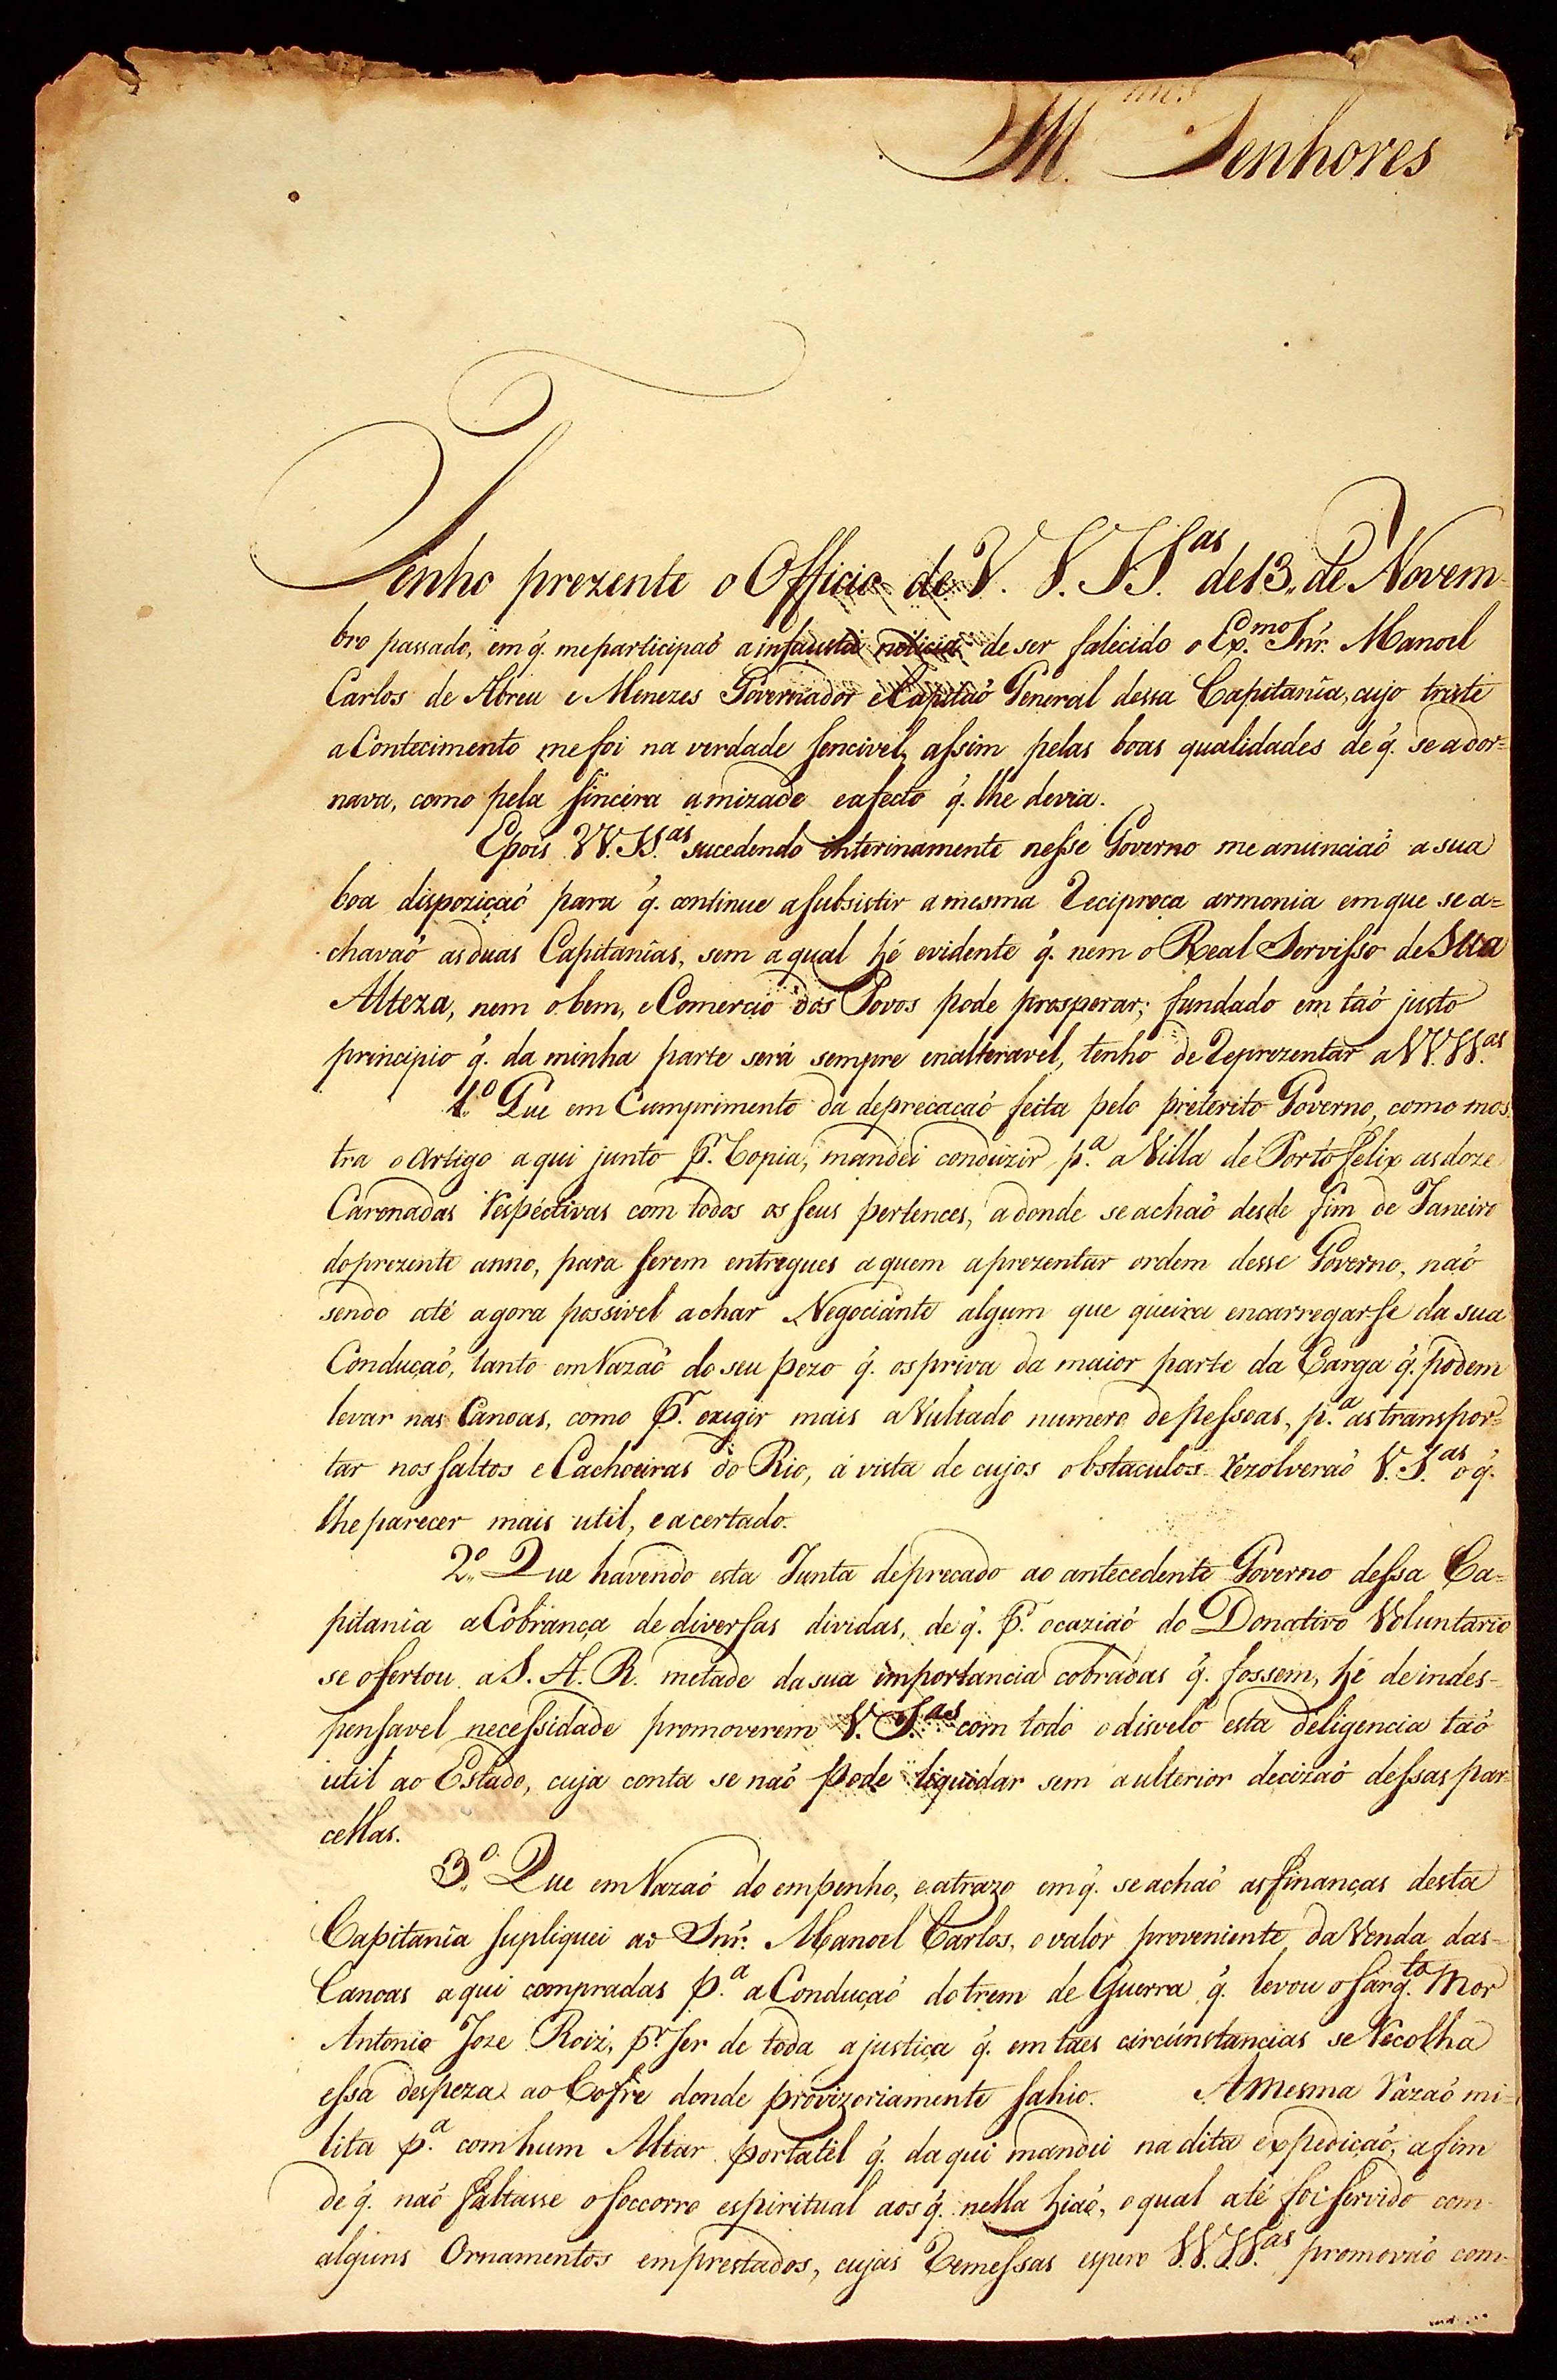 M.mos Senhores
Tenho prezente o Officio de V. V. S.S.as de 13,, de Novem-
bro passado, em q. me participaõ a infausta noticia de ser falecido o Ex.mo Snr. Manoel
Carlos de Abreu e Menezes Governador e Capitaõ General dessa Capitania, cujo triste
aContecimento me foi na verdade sencivel, assim pelas boas qualidades de q. se ador=
nava, como pela sincera amizade e afecto q. lhe devia.
E pois VV. SS.as sucedendo interinamente nesse Governo me anunciaõ a sua
boa dispoziçaõ para q. continue a subsistir a mesma Reciproca armonia em que se a=
chavaõ as duas Capitanias, sem a qual hé evidente q. nem o Real Servisso de Sua
Alteza, nem o bem, e Comercio dos Povos pode prosperar; fundado em taõ justo
principio q. da minha parte será sempre enalteravel, tenho de Reprezentar a VV. SS.as
1.º Que em Cumprimento da deprecaçaõ feita pelo preterito Governo, como mos
tra o Artigo aqui junto pr. Copia, mandei conduzir p.a a Villa de Porto Felix as doze
Caronadas Respéctivas com todos os seus pertences, adonde se achaõ desde fim de Janeiro
do prezente anno, para serem entregues a quem aprezentar ordem desse Governo, naõ
sendo até agora possivel achar Negociante algum que queira encarregar-se da sua
Conduçaõ, tanto em Razaõ do seu pezo q. os priva da maior parte da Carga q. podem
levar nas Canoas, como pr. exigir mais aVultado numero de pessoas, p.a as transpor=
tar nos saltos e Cachoeiras do Rio, á vista de cujos obstaculos Rezolveraõ V. S.as o q.
lhe parecer mais util, e acertado.
2.º Que havendo esta Junta deprecado ao antecedente Governo dessa Ca=
pitania a Cobrança de diversas dividas, de q. pr. ocaziaõ do Donativo Voluntario
se ofertou a S. A. R. metade da sua importancia cobradas q. fossem, hé de indes-
pensavel necessidade promoverem V. S.as com todo o disvelo esta deligencia taõ
util ao Estado, cuja conta se naõ pode liquidar sem a ulterior decizaõ dessas par=
cellas.
3.º Que em Razaõ do empenho, e atrazo em q. se achaõ as finanças desta
Capitania supliquei ao Snr. Manoel Carlos, o valor proveniente da Venda das-
Canoas aqui compradas p.a a Conduçaõ do trem de Guerra q. levou o Sarg.to Mor
Antonio Joze Roiz, pr. ser de toda a justiça q. em taes circunstancias se Recolha
essa despeza ao Cofre donde provizoriamente sahio. A mesma Razaõ mi-
lita p.a com hum Altar portatil q. daqui mandei na dita expediçaõ, a fim
de q. naõ faltasse o soccorro espiritual aos q. nella hiaõ, o qual até foi servido com
alguns Ornamentos emprestados, cujas Remessas espero V.V. SS.as promovaõ com-